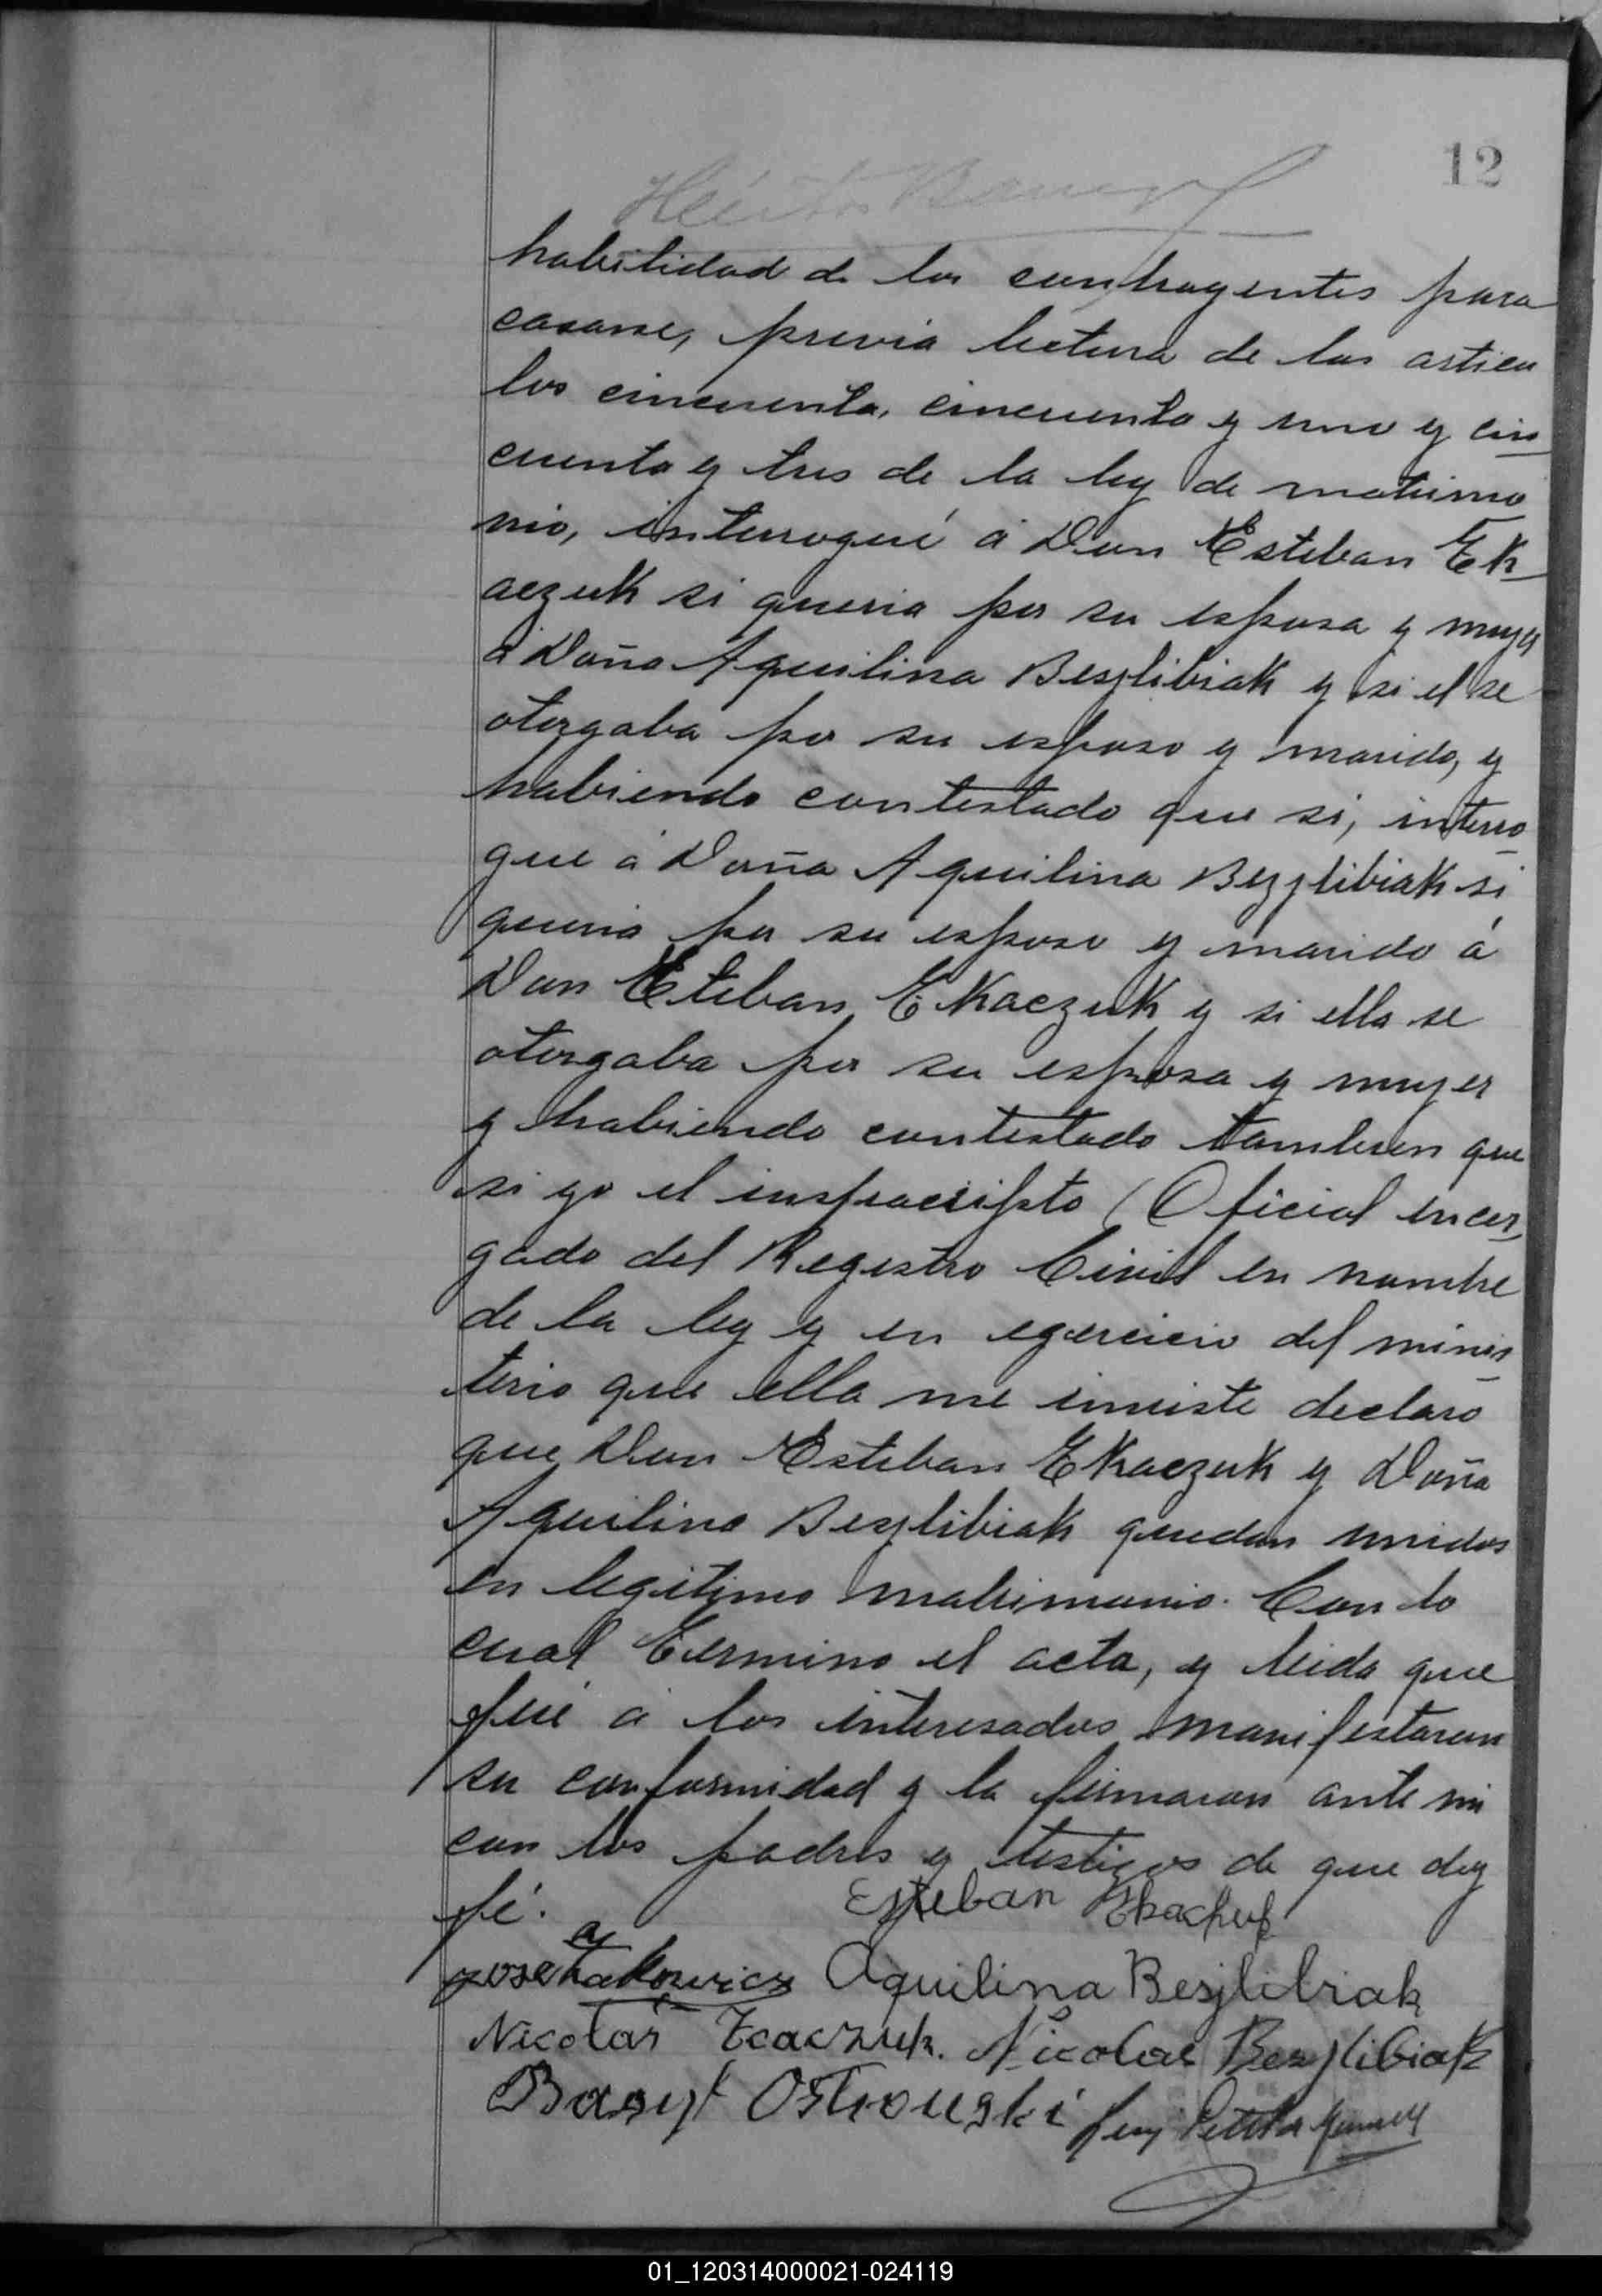 12
habilidad de los contrayentes para
casarse, previa lectura de los articu
los cincuenta, cincuenta y uno y cin
cuenta y tres de la ley de matrimo
nio, interrogué á Don Esteban Ek
aczuk si queria por su esposa y mujer
á Doña Aquilina Beszlibiak y si el se
otorgaba por su esposo y marido, y
habiendo contestado que si, interro
gue á Doña Aquilina Bezzlibiak si
queria por su esposo y marido á
Don Esteban Ekaczuk y si ella se
otorgaba por su esposa y mujer
y habiendo contestado tambien que
si yo el infrascripto Oficial encar
gado del Registro Civil en nombre
de la ley y en egercicio del minis
terio que ella me inviste declaro
que Don Esteban Ekaczuk y Doña
Aquilina Beszlibiak quedan unidos
en legitimo matrimonio. Con lo
cual termino el acta, y leida que
fué á los interesados manifestaron
su conformidad y la firmaron ante mi
con los padres y testigos de que doy
fé.
Esteban
Aquilina Besjlibiak
Nicolas Tcaczuk. Nicolas Bezjlibiak
Bazyl Ostrouski
01_120314000021-024119